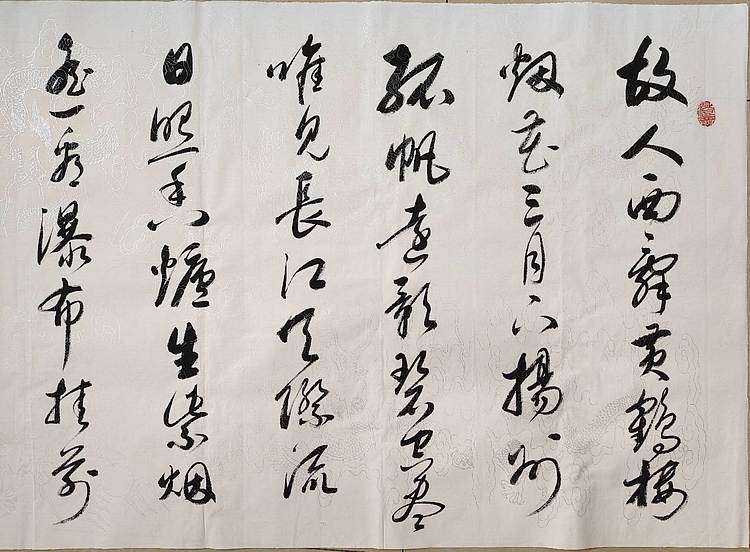 故人西辭黄鶴楼
烟花三月下揚州
孤帆遠影碧空尽
唯見長江天際流
日照香爐生紫烟
遥看瀑布挂前